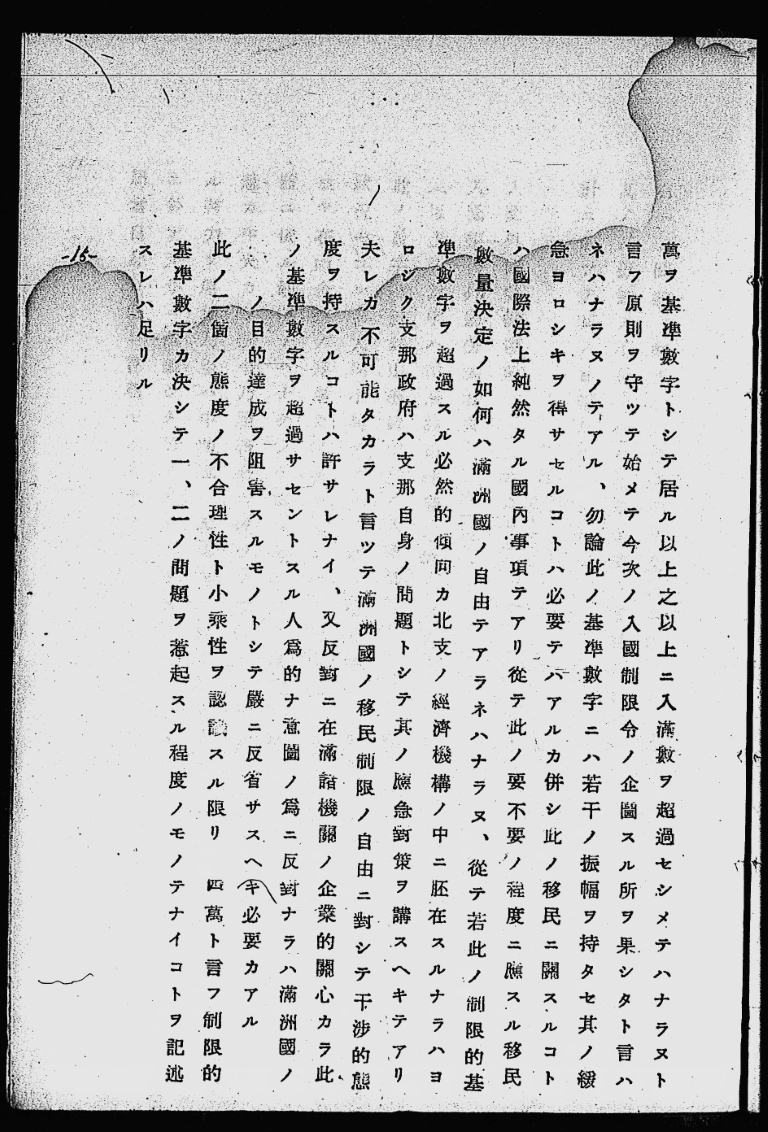 萬ヲ基準數字トシテ居ル以上之以上ニ入滿數ヲ超過セシメテハナラヌト
言フ原則ヲ守ツテ始メテ今次ノ入國制限令ノ企圖スル所ヲ果シタト言ハ
ネハナラヌノテアル、勿論此ノ基準數字ニハ若干ノ振幅ヲ持タセ其ノ緩
急ヨロシキヲ得サセルコトハ必要テハアルカ併シ此ノ移民ニ關スルコト
ハ國際法上純然タル國內事項テアリ從テ此ノ要不要ノ程度ニ應スル移民
數量決定ノ如何ハ滿洲國ノ自由テアラネハナラヌ、從テ若此ノ制限的基
準數字ヲ超過スル必然的傾向カ北支ノ經濟機構ノ中ニ胚在スルナラハヨ
ロシク支那政府ハ支那自身ノ問題トシテ其ノ應急對策ヲ講スヘキテアリ
夫レカ不可能タカラト言ツテ滿洲國ノ移民制限ノ自由ニ對シテ干涉的態
度ヲ持スルコトハ許サレナイ、又反對ニ在滿諸機關ノ企業的關心カラ此
ノ基準數字ヲ超過サセントスル人爲的ナ意圖ノ爲ニ反對ナラハ滿洲國ノ
ノ目的達成ヲ阻害スルモノトシテ嚴ニ反省サスヘキ必要カアル
此ノ二箇ノ態度ノ不合理性ト小乘性ヲ認識スル限リ 四萬ト言フ制限的
基準數字カ決シテ一、二ノ問題ヲ惹起スル程度ノモノテナイコトヲ記述
スレハ足リル
-15-